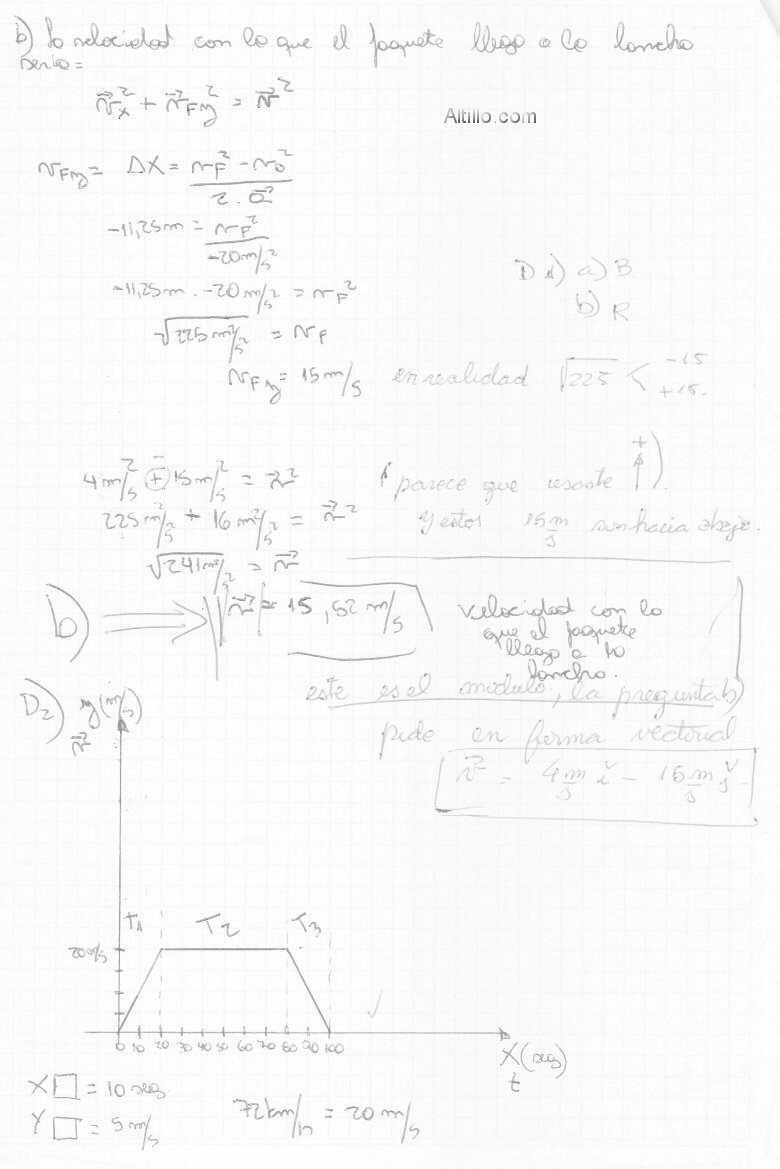 b) La velocidad con la que el paquete llega a la lancha
seria =
v⃗x² + v⃗Fy² = v⃗²
Altillo.com
vFy = ΔX = vF² - v0²
2 . a⃗
-11,25m = vF²
-20m/s²
-11,25m . -20m/s² = vF²
√225m²/s² = vF
vFy = 15m/s en realidad √225 < -15
+15.
D 1) a) B
b) R
4m/s² + 15m/s² = v⃗²
225m²/s² + 16m²/s² = v⃗²
√241m²/s² = v⃗
parece que usaste ↑+).
y estos 15 m/s son hacia abajo.
b) ⟹ |v⃗| = 15,52 m/s
Velocidad con la
que el paquete
llega a la
lancha.
este es el módulo, la pregunta b)
pide en forma vectorial
v⃗ = 4 m/s i - 15 m/s j
D2) y(m/s)
v⃗
T1 T2 T3
20m/s
0 10 20 30 40 50 60 70 80 90 100
X(seg)
t
X □ = 10 seg
Y □ = 5m/s
72km/h = 20m/s